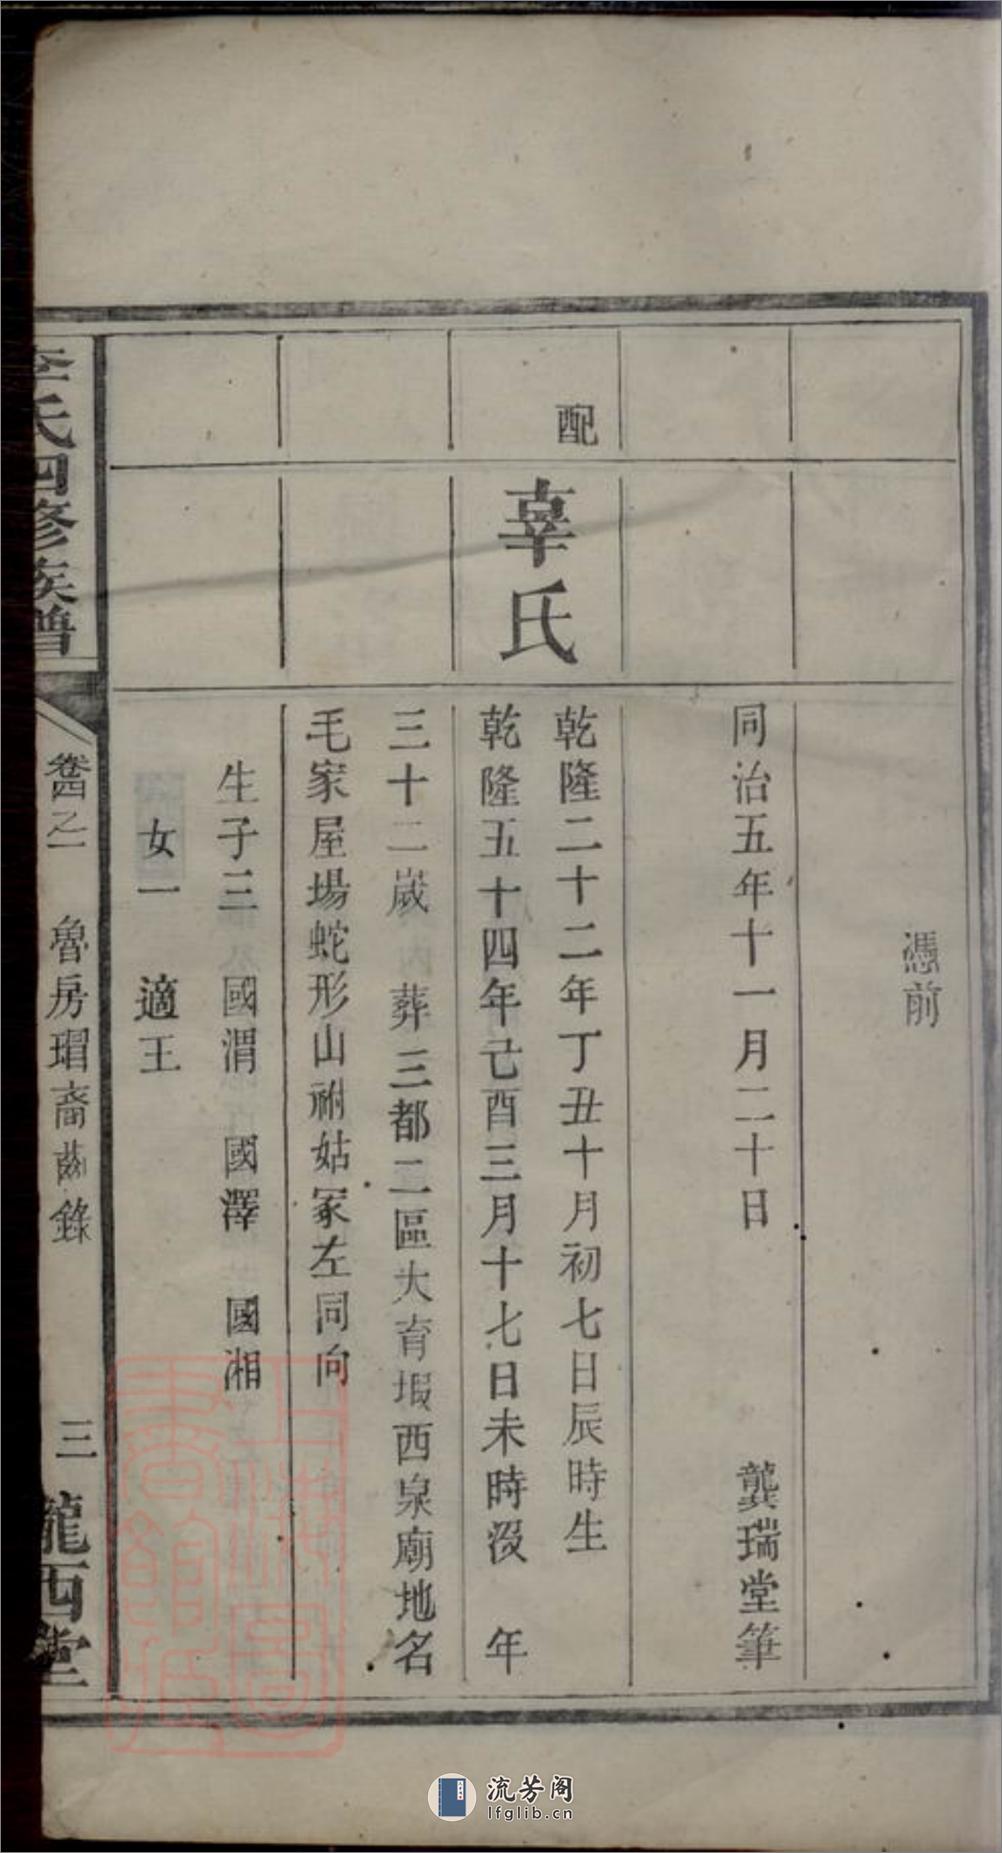 憑前
同治五年十一月二十日 龔瑞堂筆
配
辜氏
乾隆二十二年丁丑十月初七日辰時生
乾隆五十四年己酉三月十七日未時沒 年
三十二歲 葬三都二區大育塅西泉廟地名
毛家屋場蛇形山祔姑冢左同向
生子三 國渭 國澤 國湘
女一 適王
李氏四修族譜
卷四之一 魯房瑁裔齒錄
三
隴西堂
上海圖書館藏
流芳阁
lfglib.cn